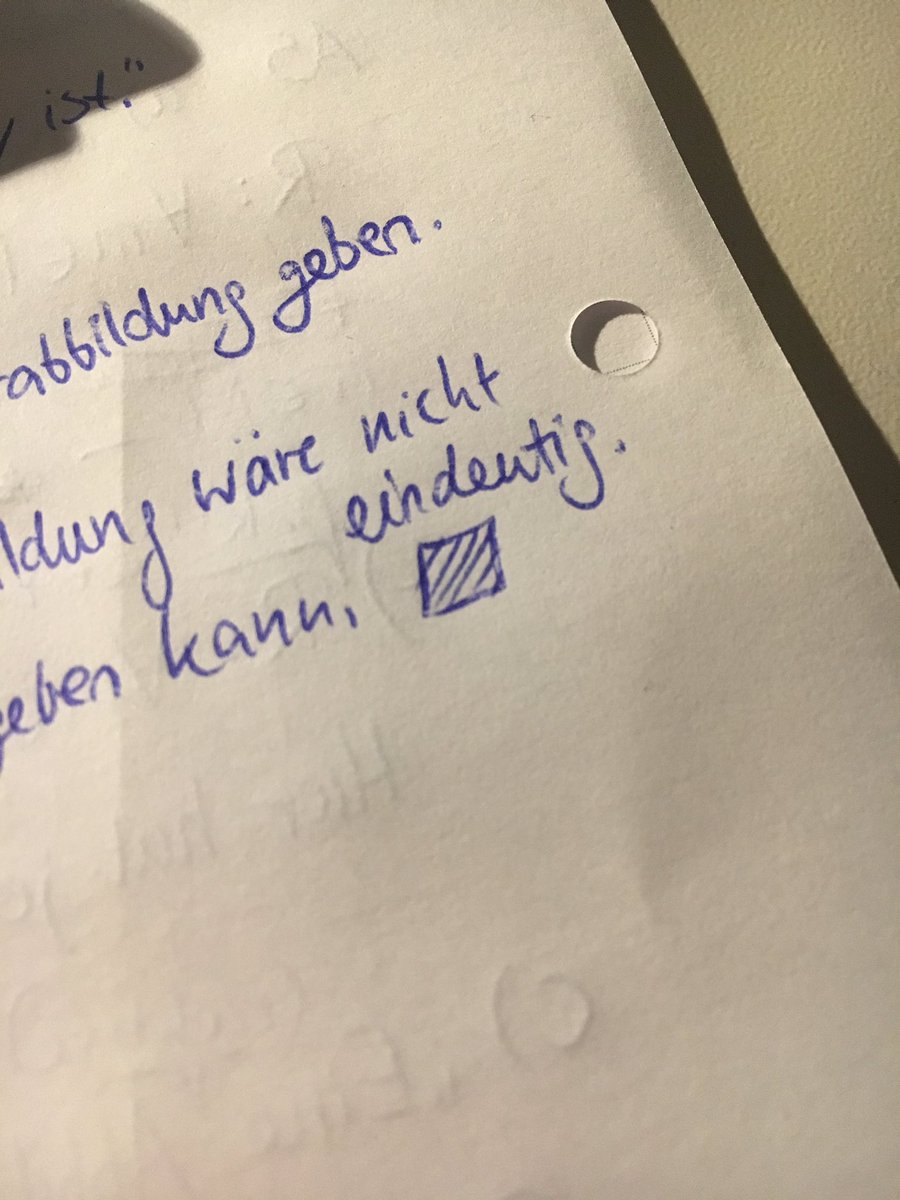 ist."
abbildung geben.
ldung wäre nicht
eindeutig.
geben kann.